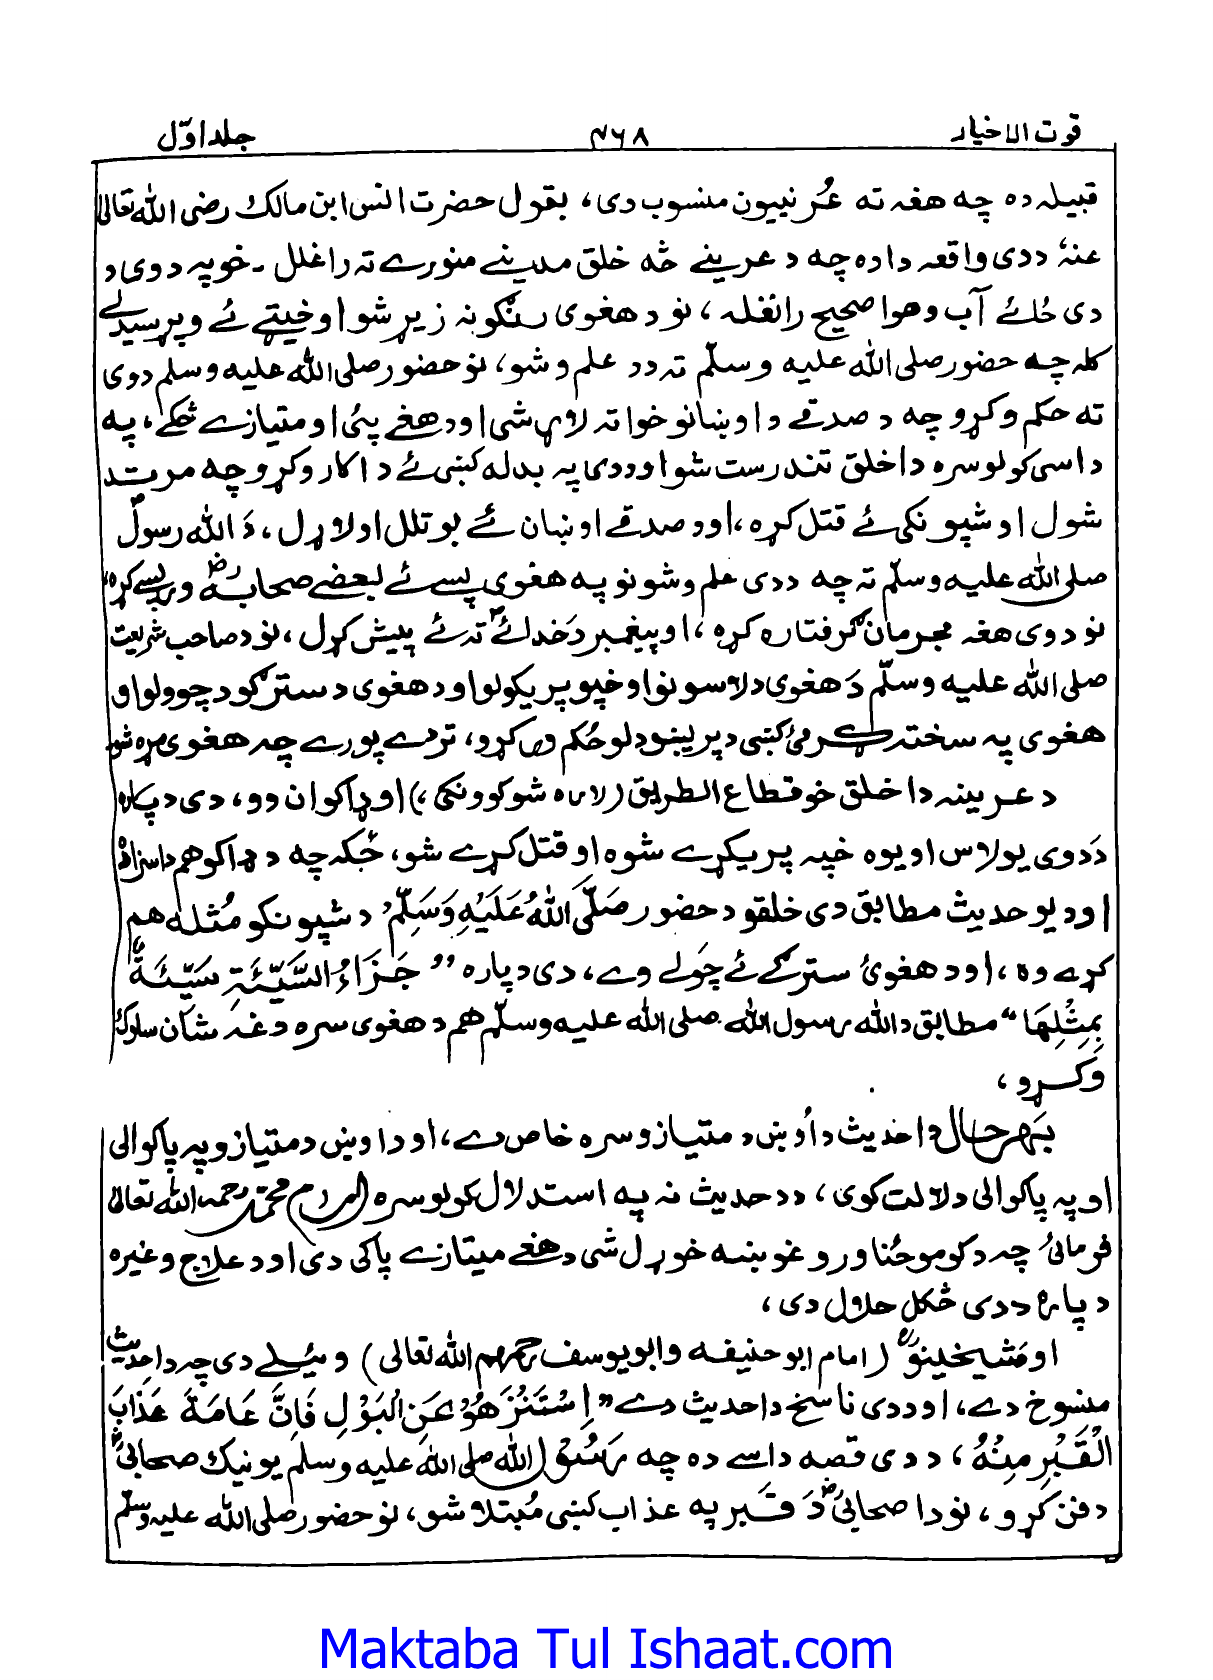 قوت الاخیار ۴۶۸ جلد اوّل
قبیلہ دہ چہ هغہ تہ عُرنییون منسوب دی، بقول حضرت انس ابن مالک رضی الله تعالیٰ
عنہٗ ددی واقعہ دا دہ چہ د عرینے څہ خلق مدینے منورے تہ راغلل ۔ خو پہ دوی د
دی ځائے آب وهوا صحیح رانغلہ، نو د هغوی رنګونہ زیړ شو او خیټے ئے وپړسیدلے
کلہ چہ حضور صلی الله علیہ وسلّم تہ دد علم وشو، نو حضور صلی الله علیہ وسلم دوی
تہ حکم وکړو چہ د صدقے د اوښانو خوا تہ لاړ شی او د هغے پئی او متیازے څکے، پہ
داسی کولو سرہ دا خلق تندرست شو او ددی پہ بدلہ کښی ئے دا کار وکړو چہ مرتد
شول او شپونکی ئے قتل کړہ، او د صدقے اوښان ئے بوتلل اولاړل، دَ الله رسولؐ
صلی الله علیہ وسلّم تہ چہ ددی علم وشو نو پہ هغوی پسے ئے بعضے صحابہؓ ورپسے کړہ،
نو دوی هغہ مجرمان ګرفتارہ کړہ، او پیغمبر دَ خدائےؐ تہ ئے پیش کړل، نو د صاحب شریعت
صلی الله علیہ وسلّم دَ هغوی د لاسونو او خپو پریکولو او د هغوی د سترګو د چوولو او
هغوی پہ سختہ ګرمۍ کښی د پریښودلو حُکم وکړو، تردے پورے چہ هغوی مړہ شو
د عرینہ دا خلق خو قطاع الطریق (لارہ شوکوونکی،) او ډاکوان وو، دی دپارہ
دَ دوی یو لاس او یوہ خپہ پریکړے شوہ او قتل کړے شو، ځکہ چہ د ډاکو هم دا سزا دہ
او د یو حدیث مطابق دی خلقو د حضور صَلَّی اللهُ عَلَیْهِ وَسَلِّمْ د شپونکو مُثلہ هم
کړے وہ، او د هغویٔ سترګے ئے چَولے وے، دی دپارہ ” جَزَاءُ السَّیِّئَةِ سَیِّئَةٌ
بِمِثْلِهَا “ مطابق د الله رسول الله صلی الله علیہ وسلّم هم د هغوی سرہ دغہ شان سلوک
وکړو،
بَهر حال دا حدیث د اُوښ د متیازو سرہ خاص دے، او د اوښ د متیازو پہ پاکوالی
او پہ پاکوالی دلالت کوی، دد حدیث نہ پہ استدلال کولو سرہ امام محمدؒ رحمہ الله تعالیٰ
فرمائیُ چہ د کومو ځناورو غوښہ خوړل شی د هغے میتازے پاکی دی او د علاج وغیرہ
دپارہ ددی څکل حلال دی،
او مَشیخینوؒ (امام ابو حنیفہ وابو یوسف رحمهم الله تعالی) وئیلے دی چہ دا حدیث
منسوخ دے، او ددی ناسخ دا حدیث دے ” اِسْتَنْزِهُوْ عَنِ الْبَوْلِ فَاِنَّ عَامَةَ عَذَابَ
الْقَبْرِ مِنْهُ، ددی قصہ داسے دہ چہ رسُوْلُ الله صلی الله علیہ وسلم یو نیک صحابیؓ
دفن کړو، نو دا صحابیؓ دَ قَبر پہ عذاب کښی مُبتلا شو، نو حضور صلی الله علیہ وسلّم
Maktaba Tul Ishaat.com